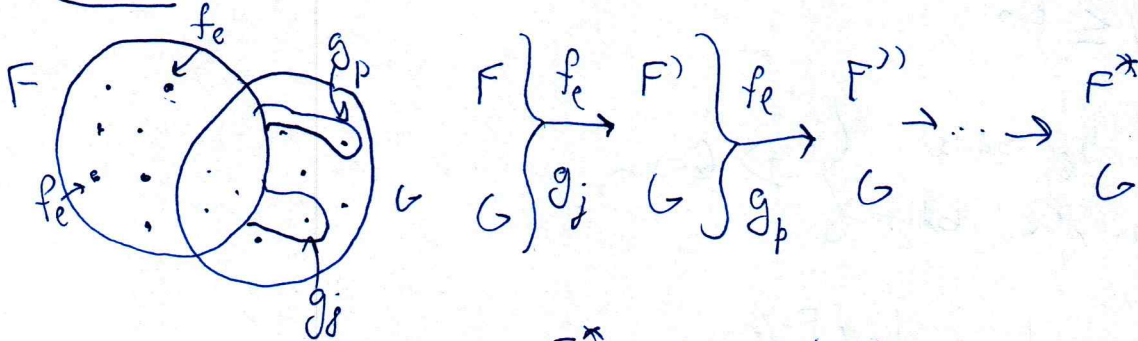 f_e
g_p
F
f_e
G
g_j
F } f_e → F' } f_e → F'' → ... → F*
G } g_j G } g_p G G
F*